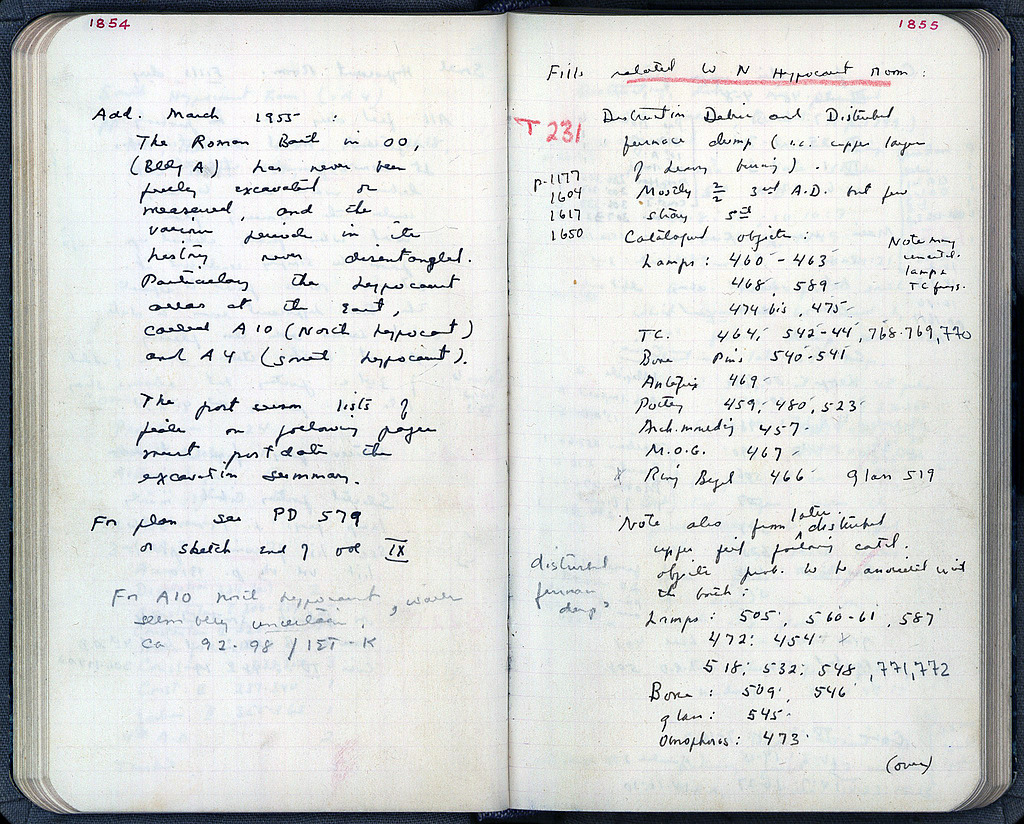 1854
Add. March 1955 :
The Roman Bath in OO,
(Bldg A) has never been
freely excavated or
measured, and the
various periods in its
history never disentangled.
Particularly the hypocaust
areas at the East,
called A10 (North hypocaust)
and A4 (south hypocaust).
The post season lists of
finds on following pages
must postdate the
excavation summary.
For plan see PD 579
or sketch end of vol IX
For A10 north hypocaust, walls
seem very uncertain.
ca 92-98 / IET-K
1855
Fills related to N Hypocaust Room :
T 231
Destruction Debris and Disturbed
furnace dump (i.e. upper layer
of heavy burning).
p. 1177
1604
1617
1650
Mostly 2/2 3rd A.D. but few
stray 5th
Catalogued objects :
Note many
uncatal.
lamps
TC frags.
Lamps : 460 - 463
468, 589
474 bis, 475
TC. 464, 542-44, 768-769, 770
Bone Pins 540-541
Antefix 469
Pottery 459, 480, 523
Arch. 457
M.O.G. 467
X Ring Bezel 466 Glass 519
Note also from later disturbed
upper fill following catal.
objects prob. to be associated with
the bath :
disturbed
furnace
dump?
Lamps : 505, 560-61, 587
472; 454 X
518; 532; 548, 771, 772
Bone : 509, 546
glass : 545
Oinophoros : 473
(over)